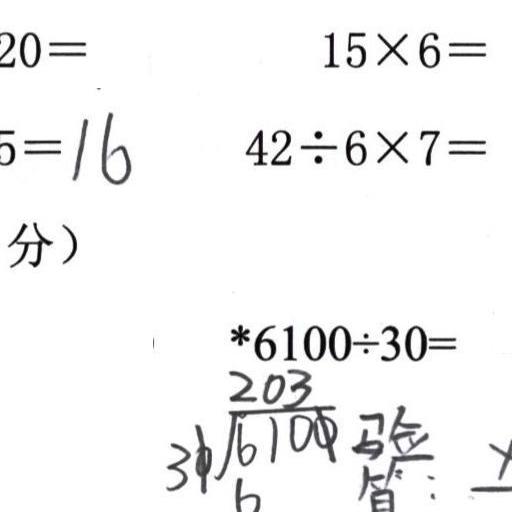 20=
15×6=
5=16
42÷6×7=
分）
*6100÷30=
203
30 6100 验
6 算: